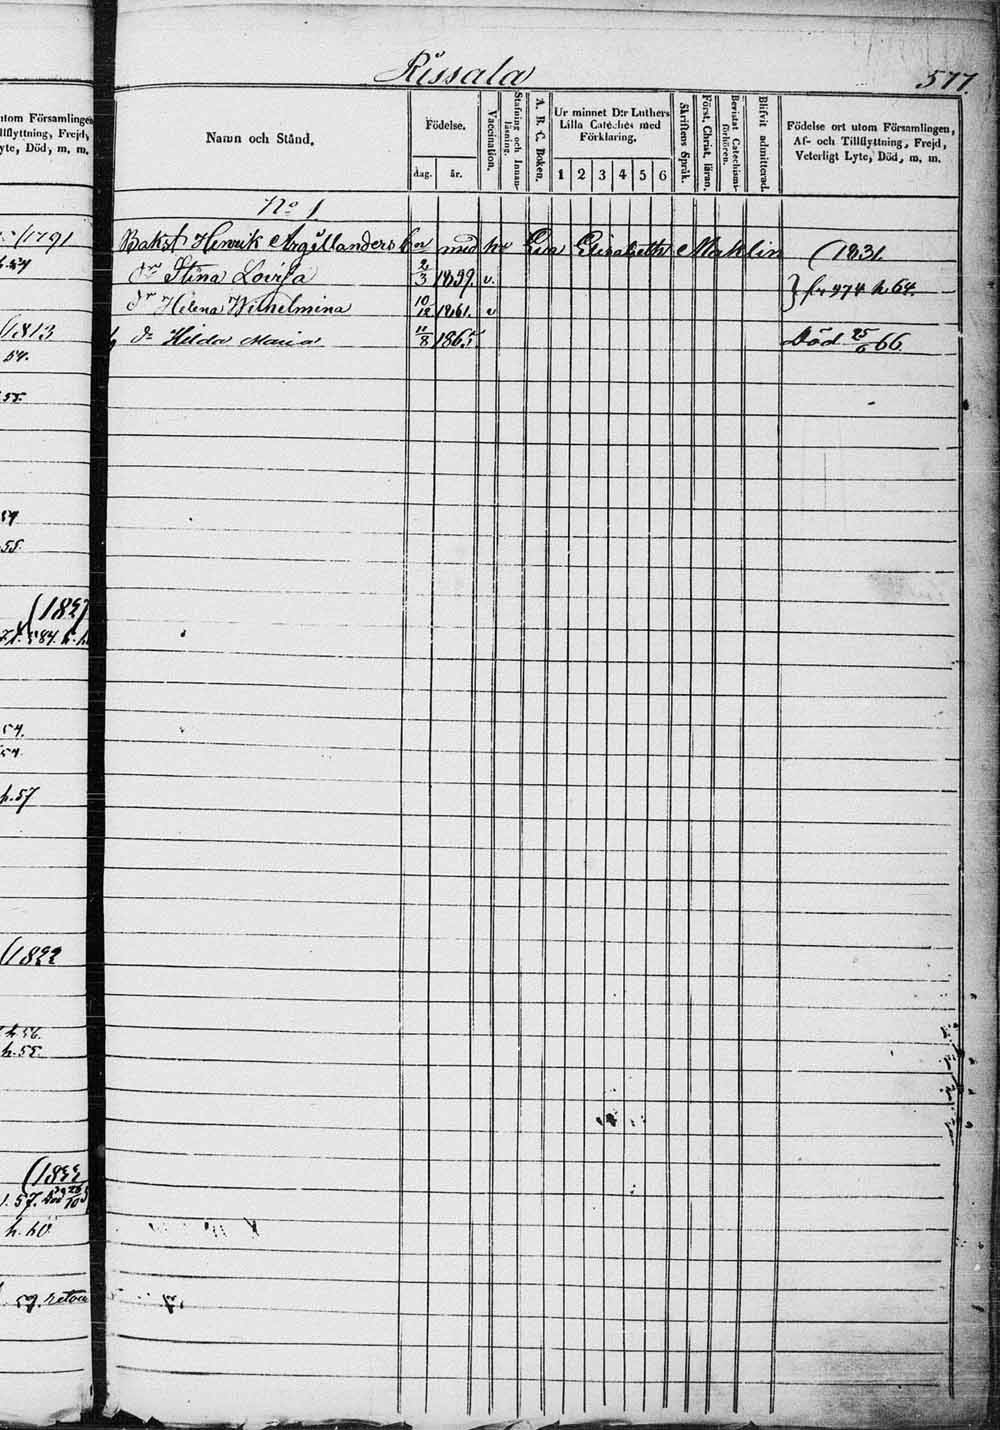 Rissala
577.
utom Församlingen
Tillflyttning, Frejd,
Lyte, Död, m. m.
Namn och Stånd.
Födelse.
dag.
år.
Vaccination.
Stafning och Innanläsning.
A. B. C. Boken.
Ur minnet D:r Luthers
Lilla Cateches med
Förklaring.
1 2 3 4 5 6
Skriftens Språk.
Först. Christ. läran.
Bevistat Catechismiförhören.
Blifvit admitterad.
Födelse ort utom Församlingen,
Af- och Tillflyttning, Frejd,
Veterligt Lyte, Död, m. m.
No 1
Bakst Henrik Argillanders med Eva Elisabeth Maklin (1831.
dr Stina Lovisa 2/3 1859. v.
} fr 974 h 64.
dr Helena Wilhelmina 10/12 1861. v
dr Hilda Maria 11/8 1865. Död 25/6 66.
(1791
h.54
(1813
54.
55.
54
55.
(1827
584.
54.
54.
h.57
(1822
h.56.
h.55.
(1822
57.
h.60
59. retour